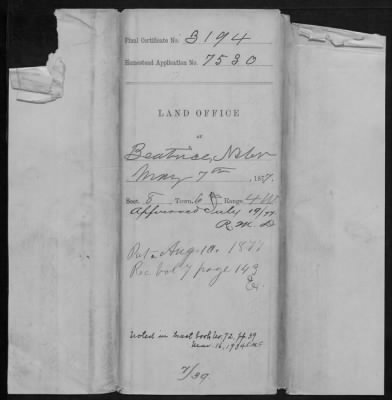 Final Certificate No. 3194
Homestead Application No. 7530
LAND OFFICE
AT
Beatrice, Nebr
May 7th 1877.
Sect. 8 Town. 6 Range. 4 W
Approved July 19/77
R. M. D
Pat. Aug. 10. 1877
Rec Vol 7 page 143
Noted in tract book No. 72, pp. 39
Mar. 16, 1934
7/39